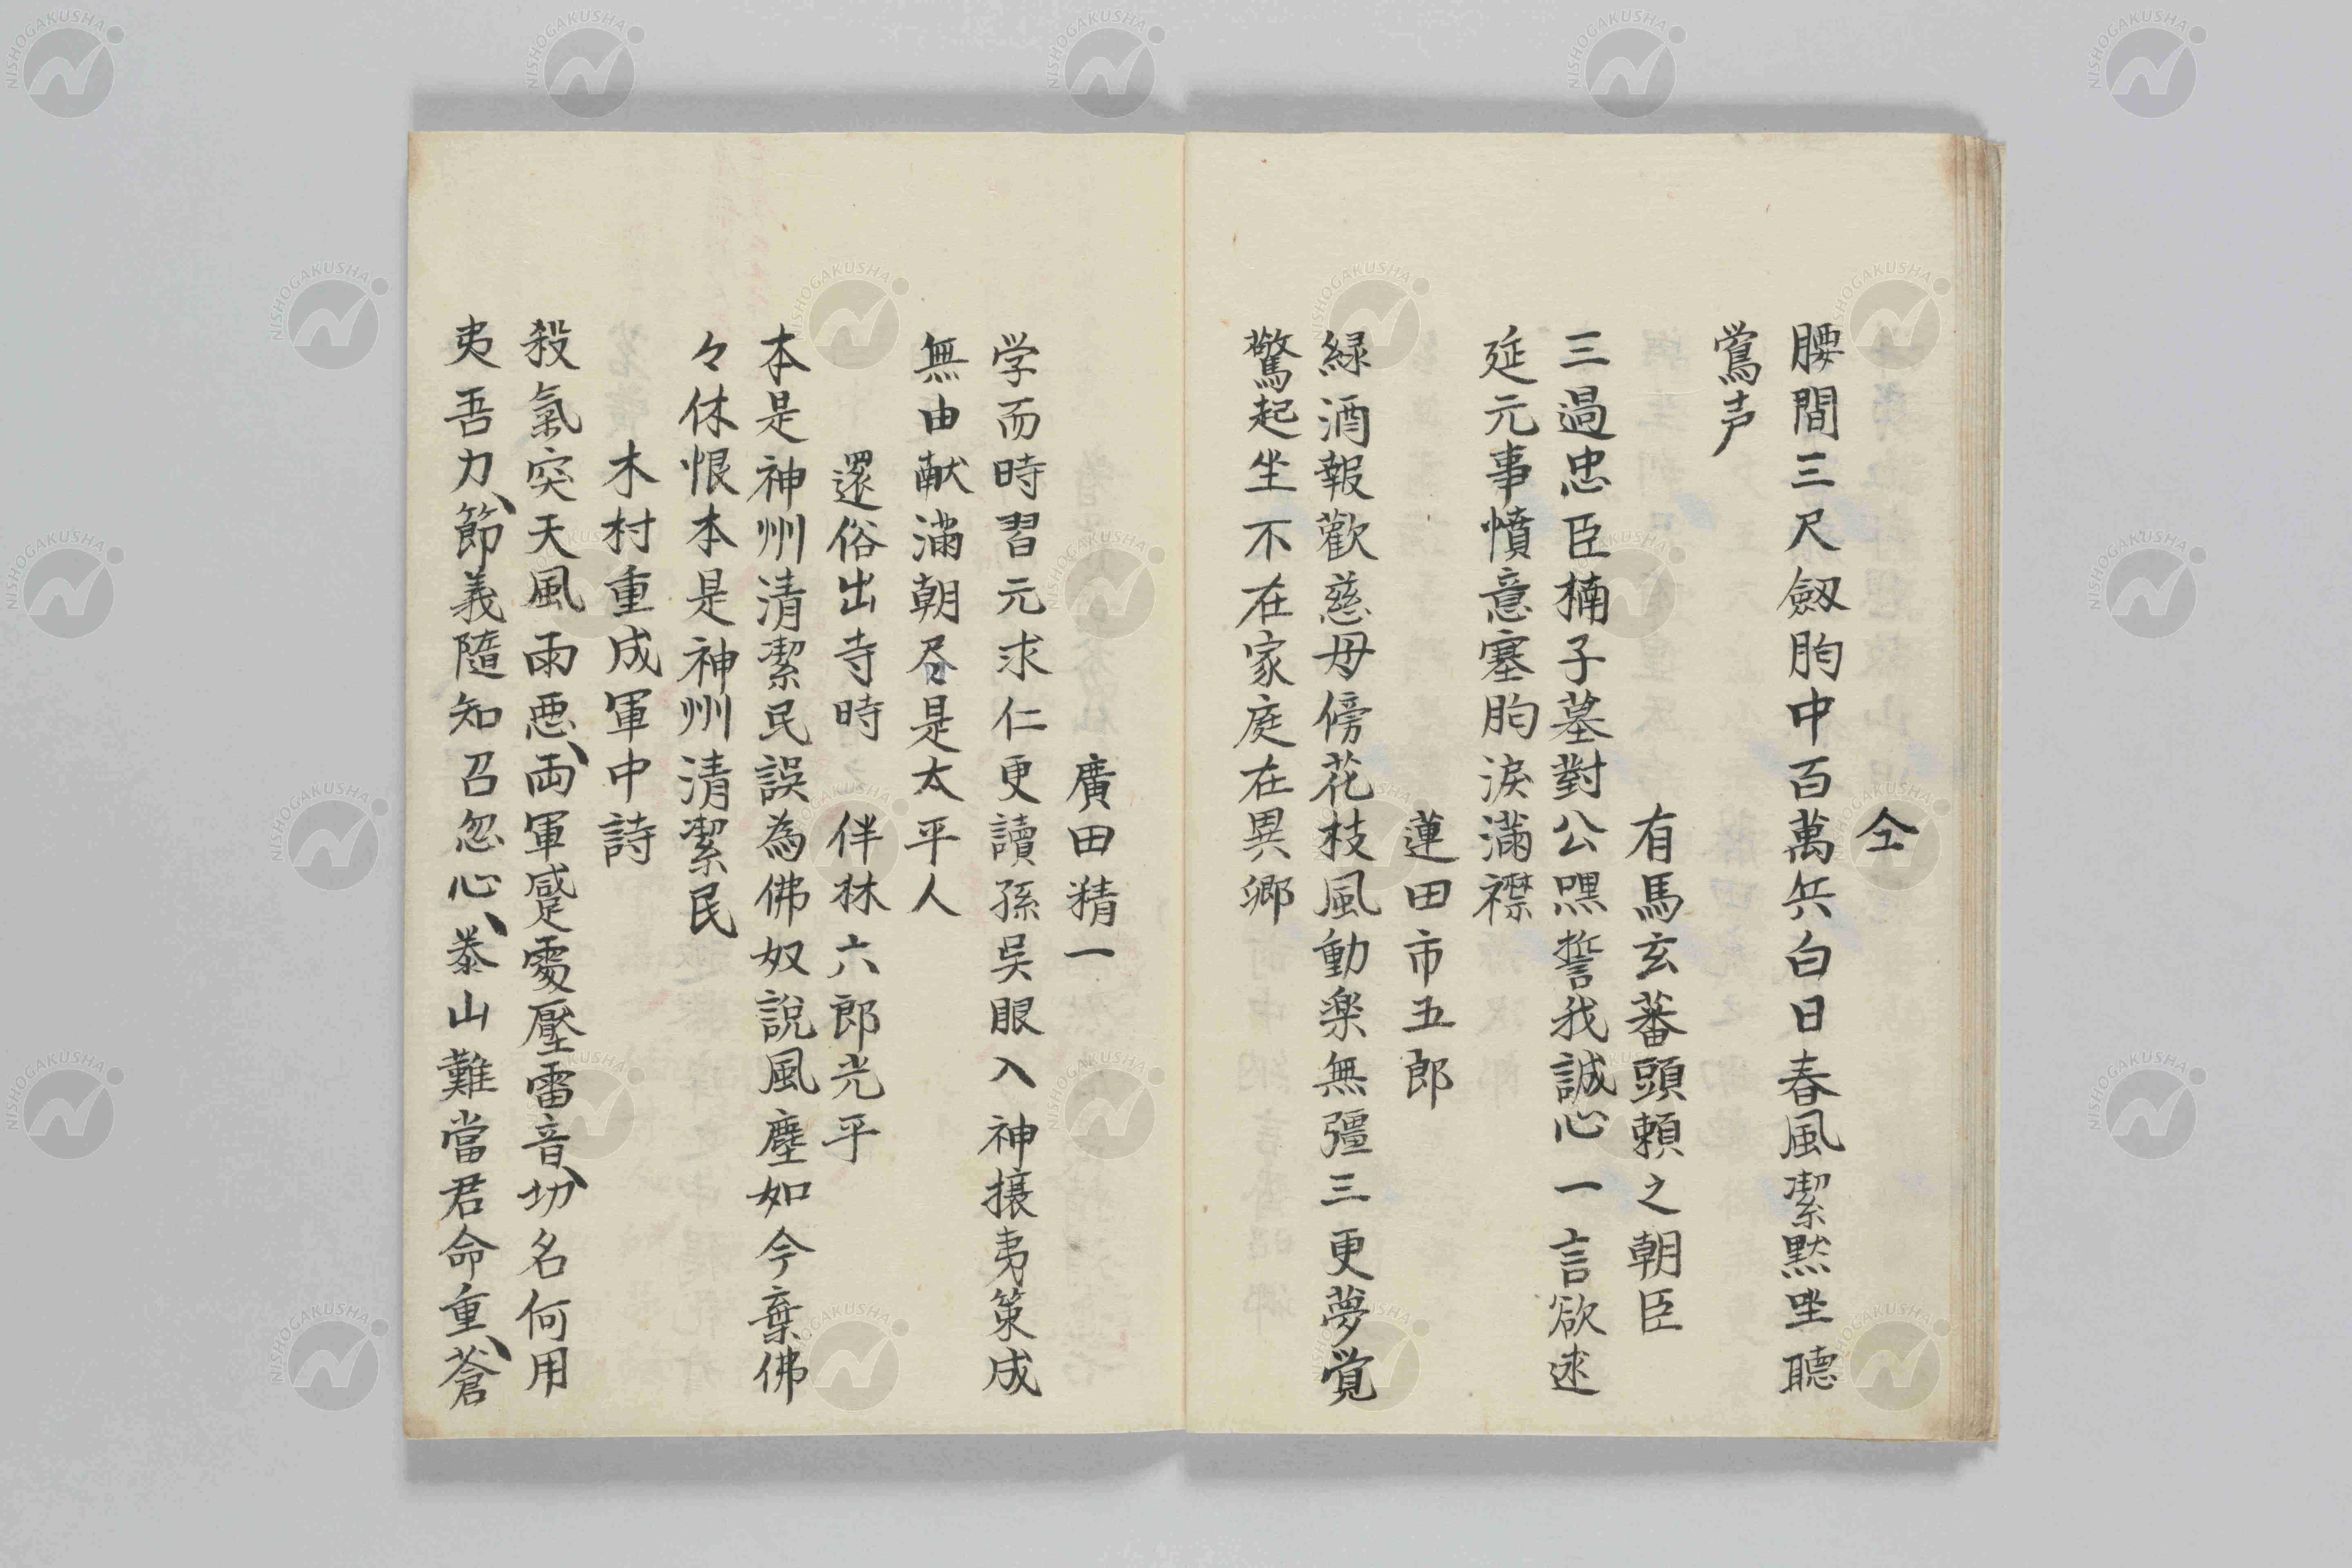 仝
腰間三尺劔胸中百萬兵白日春風潔黙坐聽
鴬声
有馬玄蕃頭頼之朝臣
三過忠臣楠子墓對公嘿誓我誠心一言欲述
延元事憤意塞胸涙満襟
蓮田市五郎
緑酒報歡慈母傍花枝風動楽無彊三更夢覚
驚起坐不在家庭在異郷
廣田精一
学而時習元求仁更讀孫呉眼入神攘夷策成
無由献満朝尽是太平人
還俗出寺時 伴林六郎光平
本是神州清潔民誤為佛奴説風塵如今棄佛
々休恨本是神州清潔民
木村重成軍中詩
殺氣突天風雨悪、両軍蹙處壓雷音、功名何用
夷吾力、節義隨知召忽心、泰山難當君命重、蒼
NISHOGAKUSHA